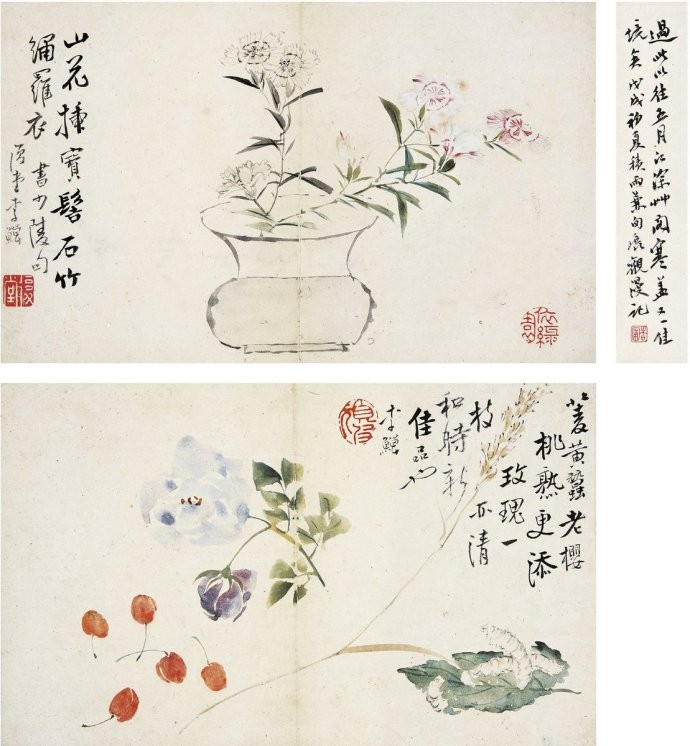 山花插寶髻石竹
繡羅衣
書少陵句
復堂李鱓
過此以往五月江深艸閣寒蓋又一佳
境矣戊戌初夏積雨兼旬展觀漫記
麥黃蠶老櫻
桃熟更添
玫瑰一
枝
和時新
亦清
佳品也
李鱓